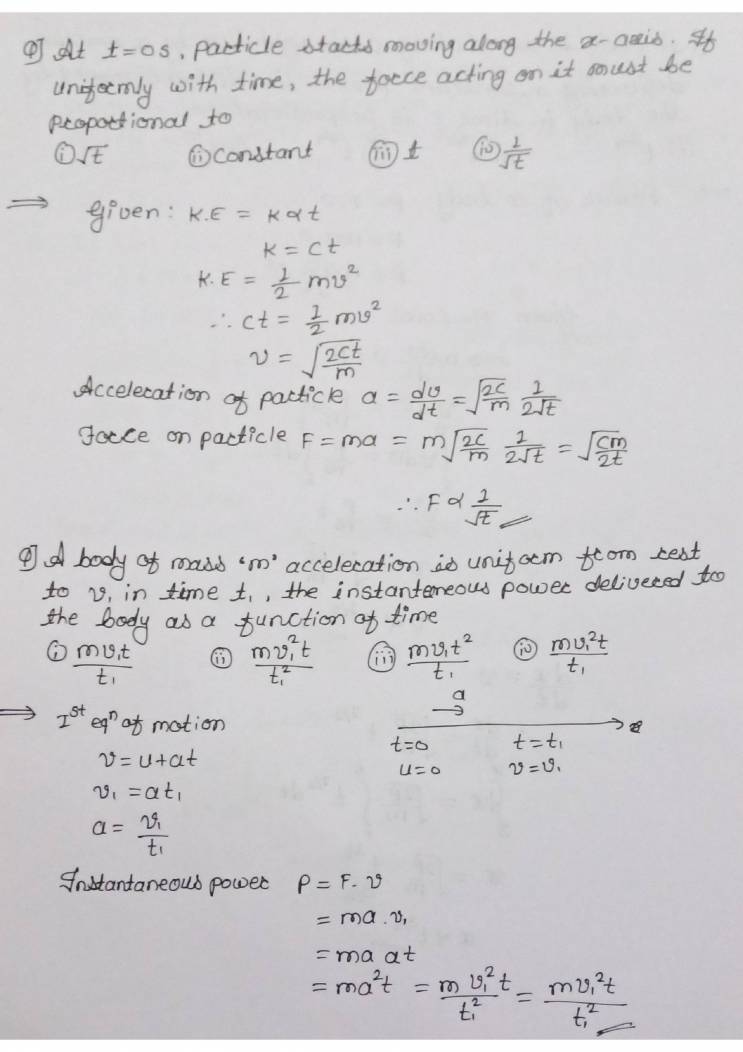 Q] At t=0s, particle starts moving along the x-axis. If
uniformly with time, the force acting on it must be
proportional to
(i) √t (ii) constant (iii) t (iv) 1/√t
⇒ Given: K.E = K ∝ t
K = ct
K.E = 1/2 mv²
∴ ct = 1/2 mv²
v = √(2ct/m)
Acceleration of particle a = dv/dt = √(2c/m) 1/(2√t)
Force on particle F = ma = m√(2c/m) 1/(2√t) = √(cm/2t)
∴ F ∝ 1/√t
Q] A body of mass 'm' acceleration is uniform from rest
to v₁ in time t₁, the instanteneous power delivered to
the body as a function of time
(i) mv₁t/t₁ (ii) mv₁²t/t₁² (iii) mv₁t²/t₁ (iv) mv₁²t/t₁
⇒ Ist eqn of motion
a
→
t=0 t=t₁
u=0 v=v₁
v = u+at
v₁ = at₁
a = v₁/t₁
Instantaneous power P = F. v
= ma . v₁
= ma at
= ma²t = m v₁²t/t₁² = mv₁²t/t₁²